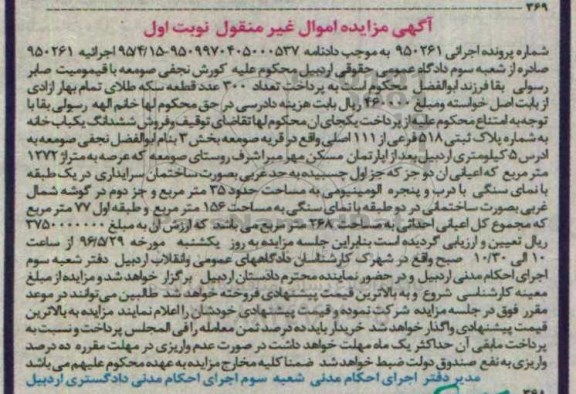 ۳۶۹
آگهی مزایده اموال غیر منقول نوبت اول
شماره پرونده اجرائی ۹۵۰۲۶۱ به موجب دادنامه ۹۵۰۹۹۷۰۴۰۵۰۰۰۵۳۷-۹۵/۴/۱۵ اجرائیه ۹۵۰۲۶۱
صادره از شعبه سوم دادگاه عمومی حقوقی اردبیل محکوم علیه کورش نجفی صومعه با قیمومیت صابر
رسولی بقا فرزند ابوالفضل محکوم است به پرداخت تعداد ۳۰۰ عدد قطعه سکه طلای تمام بهار ازادی
از بابت اصل خواسته ومبلغ ریال بابت هزینه دادرسی در حق محکوم لها خانم الهه رسولی بقا با
توجه به امتناع محکوم علیه از پرداخت یکجای ان محکوم لها تقاضای توقیف وفروش ششدانگ یکباب خانه
به شماره پلاک ثبتی ۵۱۸ فرعی از ۱۱۱ اصلی واقع در قریه صومعه بخش ۳ بنام ابوالفضل نجفی صومعه به
ادرس ۵ کیلومتری اردبیل بعد از اپارتمان مسکن مهر میراشرف روستای صومعه که عرصه به متراژ ۱۲۷۲
متر مربع که اعیانی ان دو جز که جز اول چسبیده به حد غربی بصورت ساختمان سرایداری در یک طبقه
با نمای سنگی با درب و پنجره الومینیومی به مساحت حدود ۳۵ متر مربع و جز دوم در گوشه شمال
غربی بصورت ساختمانی در دو طبقه با نمای سنگی به مساحت ۱۵۶ متر مربع و طبقه اول ۷۷ متر مربع
که مجموع کل اعیانی احداثی به مساحت ۲۶۸ متر مربع می باشد که ارزش آن به مبلغ ۳۷۵۰۰۰۰۰۰۰
ریال تعیین و ارزیابی گردیده است بنابراین جلسه مزایده به روز یکشنبه مورخه ۹۶/۵/۲۹ از ساعت
۱۰ الی ۱۰/۳۰ صبح واقع در شهرک کارشناسان دادگاههای عمومی وانقلاب اردبیل دفتر شعبه سوم
اجرای احکام مدنی اردبیل و در حضور نماینده محترم دادستان اردبیل برگزار خواهد شد و مزایده از مبلغ
معینه کارشناسی شروع و به بالاترین قیمت پیشنهادی فروخته خواهد شد طالبین می توانند در موعد
مقرر فوق در جلسه مزایده شرکت نموده و قیمت پیشنهادی خودشان را اعلام نمایند مزایده به بالاترین
قیمت پیشنهادی واگذار خواهد شد خریدار باید ده درصد ثمن معامله را فی المجلس پرداخت و نسبت به
پرداخت مابقی آن حداکثر یک ماه مهلت خواهد داشت در صورت عدم واریزی در مهلت مقرره ده درصد
واریزی به نفع صندوق دولت ضبط خواهد شد ضمنا کلیه مخارج مزایده به عهده محکوم علیهم می باشد
مدیر دفتر اجرای احکام مدنی شعبه سوم اجرای احکام مدنی دادگستری اردبیل
۳۶۸